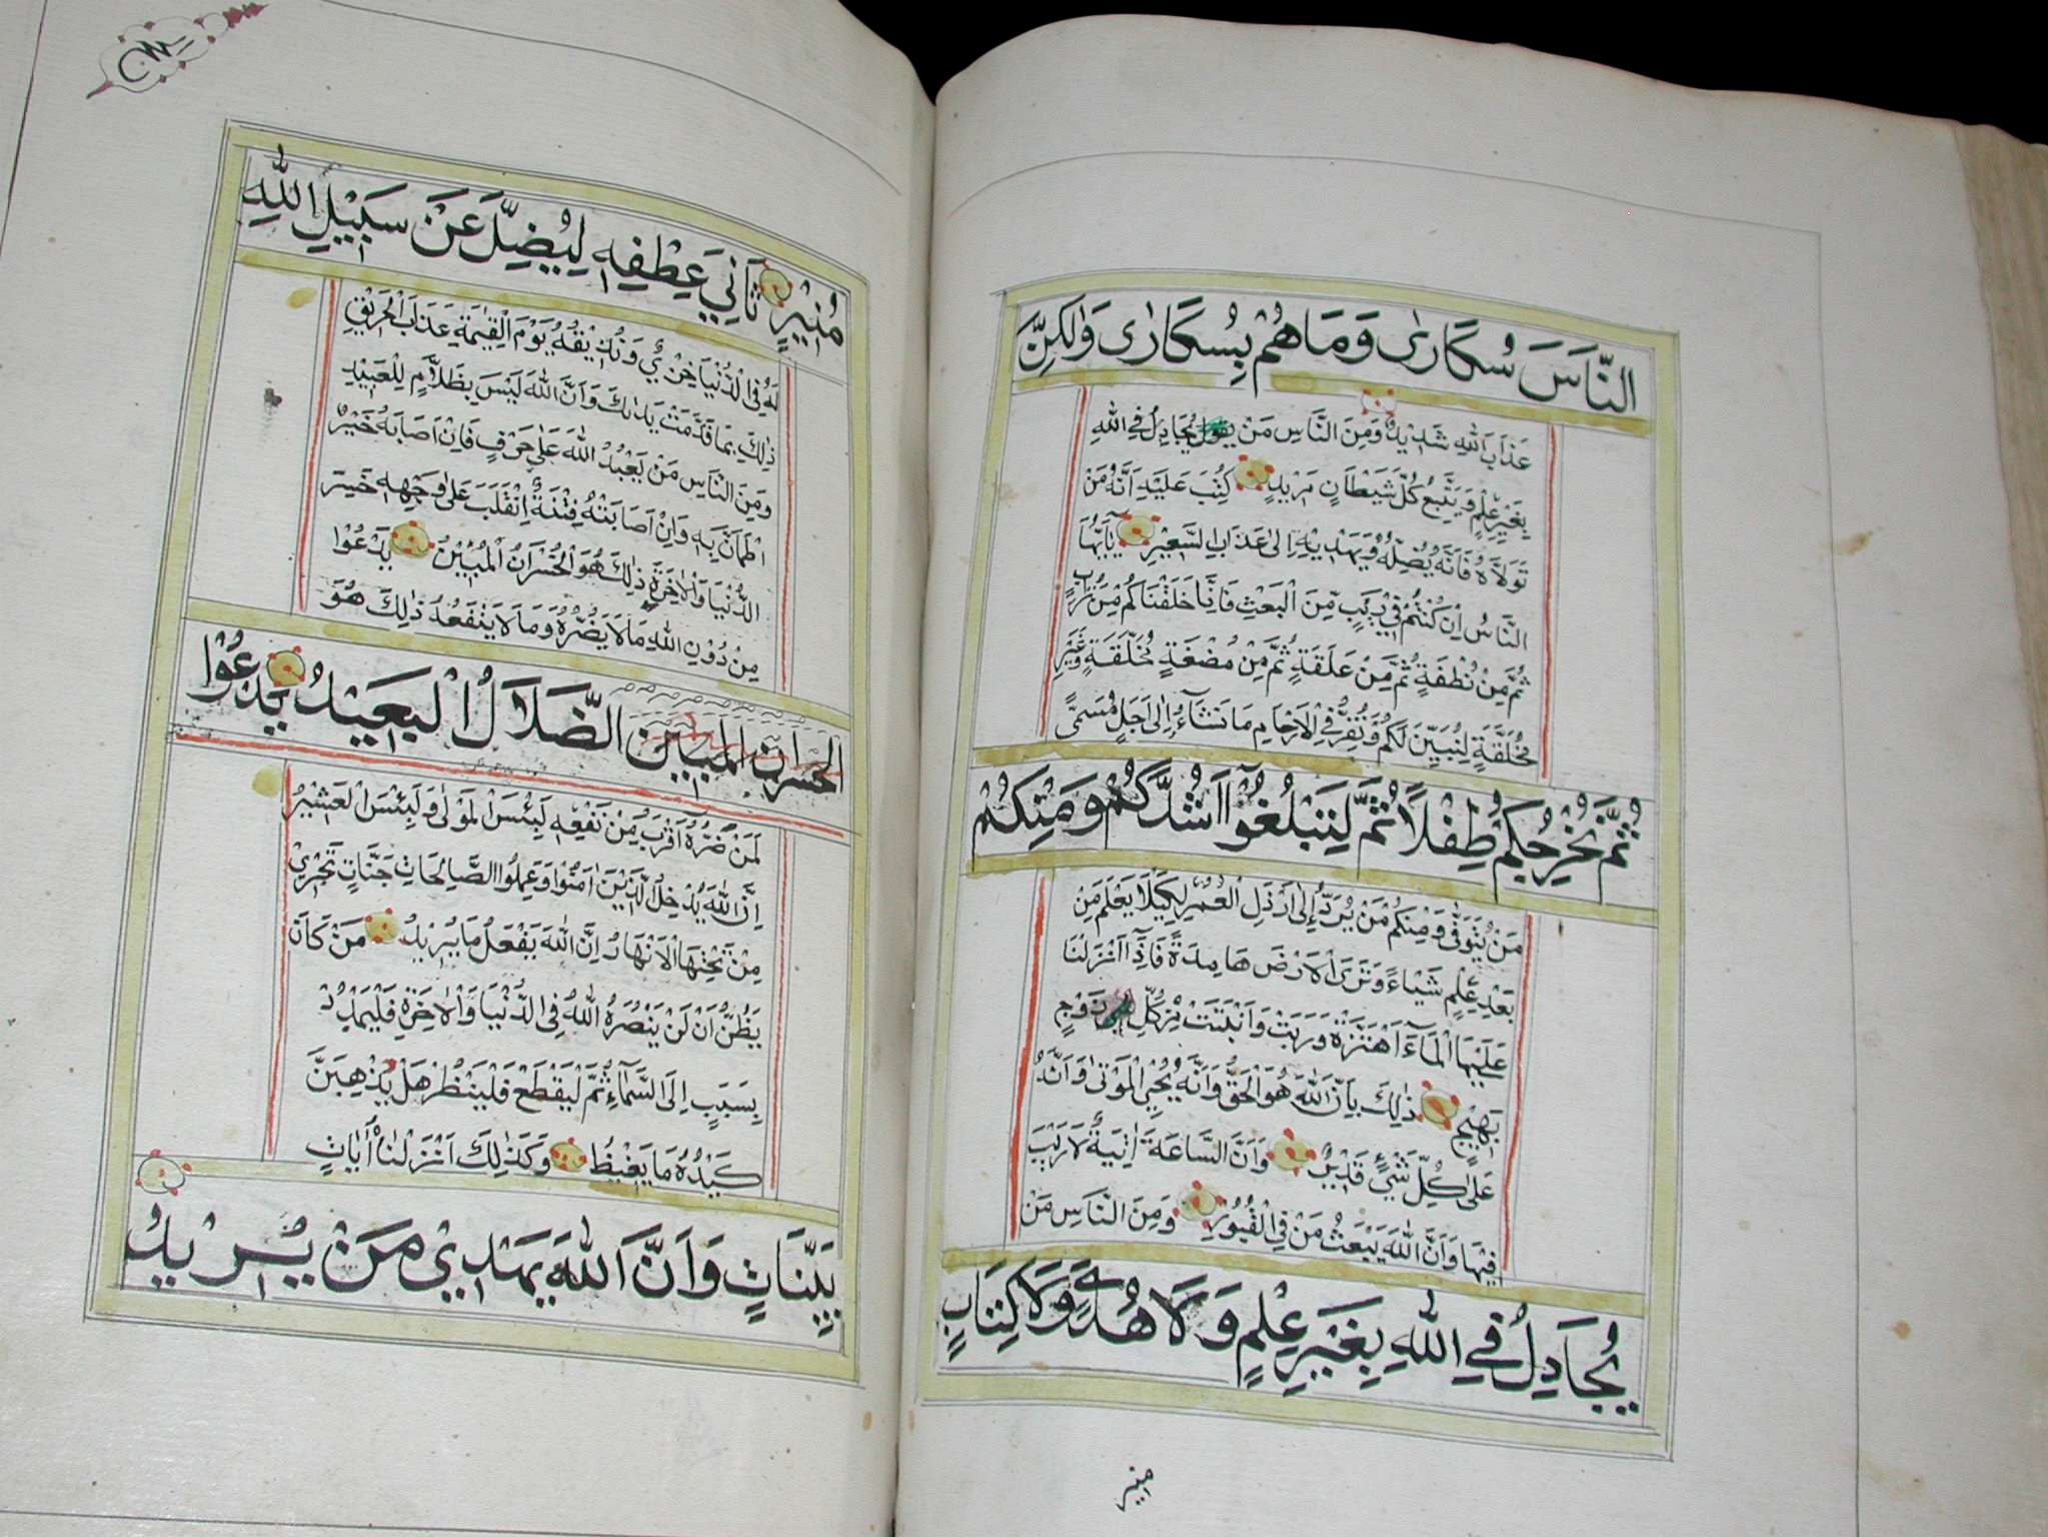 النَّاسَ سُكَارٰى وَمَا هُمْ بِسُكَارٰى وَلٰكِنَّ
عَذَابَ اللّٰهِ شَدِيْدٌ وَمِنَ النَّاسِ مَنْ يُجَادِلُ فِي اللّٰهِ
بِغَيْرِ عِلْمٍ وَيَتَّبِعُ كُلَّ شَيْطَانٍ مَرِيْدٍ كُتِبَ عَلَيْهِ اَنَّهُ مَنْ
تَوَلَّاهُ فَاَنَّهُ يُضِلُّهُ وَيَهْدِيْهِ اِلٰى عَذَابِ السَّعِيْرِ يٰٓاَيُّهَا
النَّاسُ اِنْ كُنْتُمْ فِيْ رَيْبٍ مِّنَ الْبَعْثِ فَاِنَّا خَلَقْنَاكُمْ مِنْ تُرَابٍ
ثُمَّ مِنْ نُطْفَةٍ ثُمَّ مِنْ عَلَقَةٍ ثُمَّ مِنْ مُضْغَةٍ مُخَلَّقَةٍ وَغَيْرِ
مُخَلَّقَةٍ لِنُبَيِّنَ لَكُمْ وَنُقِرُّ فِي الْاَرْحَامِ مَا نَشَآءُ اِلٰى اَجَلٍ مُسَمًّى
ثُمَّ نُخْرِجُكُمْ طِفْلًا ثُمَّ لِتَبْلُغُوْٓا اَشُدَّكُمْ وَمِنْكُمْ
مَنْ يُتَوَفّٰى وَمِنْكُمْ مَنْ يُرَدُّ اِلٰى اَرْذَلِ الْعُمُرِ لِكَيْلَا يَعْلَمَ مِنْ
بَعْدِ عِلْمٍ شَيْءًا وَتَرَى الْاَرْضَ هَامِدَةً فَاِذَٓا اَنْزَلْنَا
عَلَيْهَا الْمَآءَ اهْتَزَّتْ وَرَبَتْ وَاَنْبَتَتْ مِنْ كُلِّ زَوْجٍ
بَهِيْجٍ ذٰلِكَ بِاَنَّ اللّٰهَ هُوَ الْحَقُّ وَاَنَّهُ يُحْيِي الْمَوْتٰى وَاَنَّهُ
عَلٰى كُلِّ شَيْءٍ قَدِيْرٌ وَاَنَّ السَّاعَةَ اٰتِيَةٌ لَا رَيْبَ
فِيْهَا وَاَنَّ اللّٰهَ يَبْعَثُ مَنْ فِي الْقُبُوْرِ وَمِنَ النَّاسِ مَنْ
يُجَادِلُ فِي اللّٰهِ بِغَيْرِ عِلْمٍ وَلَا هُدًى وَلَا كِتَابٍ
منير
مُنِيْرٍ ثَانِيَ عِطْفِهِ لِيُضِلَّ عَنْ سَبِيْلِ اللّٰهِ
لَهُ فِي الدُّنْيَا خِزْيٌ وَنُذِيْقُهُ يَوْمَ الْقِيٰمَةِ عَذَابَ الْحَرِيْقِ
ذٰلِكَ بِمَا قَدَّمَتْ يَدَاكَ وَاَنَّ اللّٰهَ لَيْسَ بِظَلَّامٍ لِلْعَبِيْدِ
وَمِنَ النَّاسِ مَنْ يَعْبُدُ اللّٰهَ عَلٰى حَرْفٍ فَاِنْ اَصَابَهُ خَيْرٌ
اطْمَاَنَّ بِهِ وَاِنْ اَصَابَتْهُ فِتْنَةٌ اِنْقَلَبَ عَلٰى وَجْهِهِ خَسِرَ
الدُّنْيَا وَالْاٰخِرَةَ ذٰلِكَ هُوَ الْخُسْرَانُ الْمُبِيْنُ يَدْعُوْا
مِنْ دُوْنِ اللّٰهِ مَا لَا يَضُرُّهُ وَمَا لَا يَنْفَعُهُ ذٰلِكَ هُوَ
الخسران المبين الضَّلَالُ الْبَعِيْدُ يَدْعُوْا
لَمَنْ ضَرُّهُ اَقْرَبُ مِنْ نَفْعِهِ لَبِئْسَ الْمَوْلٰى وَلَبِئْسَ الْعَشِيْرُ
اِنَّ اللّٰهَ يُدْخِلُ الَّذِيْنَ اٰمَنُوْا وَعَمِلُوا الصَّالِحَاتِ جَنَّاتٍ تَجْرِيْ
مِنْ تَحْتِهَا الْاَنْهَارُ اِنَّ اللّٰهَ يَفْعَلُ مَا يُرِيْدُ مَنْ كَانَ
يَظُنُّ اَنْ لَنْ يَنْصُرَهُ اللّٰهُ فِي الدُّنْيَا وَالْاٰخِرَةِ فَلْيَمْدُدْ
بِسَبَبٍ اِلَى السَّمَآءِ ثُمَّ لْيَقْطَعْ فَلْيَنْظُرْ هَلْ يُذْهِبَنَّ
كَيْدُهُ مَا يَغِيْظُ وَكَذٰلِكَ اَنْزَلْنَاهُ اٰيَاتٍ
بَيِّنَاتٍ وَاَنَّ اللّٰهَ يَهْدِيْ مَنْ يُرِيْدُ